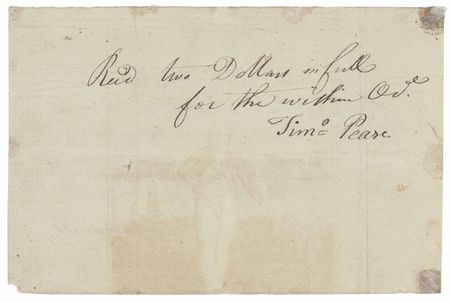 Rec'd two Dollars in full
for the within Ord.
Timo Pease